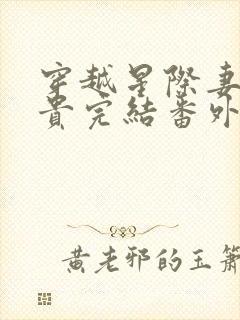 穿越星際妻
貴完結番外
黃老邪的玉簫